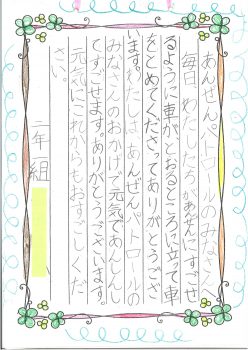 あんぜんパトロールのみなさんへ
毎日わたしたちがあんぜんにすごせ
るように車がとおるところに立って車
をとめてくださってありがとうござ
います。わたしは、あんぜんパトロールの
みなさんのおかげで元気であんしんし
てすごせます。ありがとうございます。
元気にこれからもおすごしくだ
さい。
二年 組